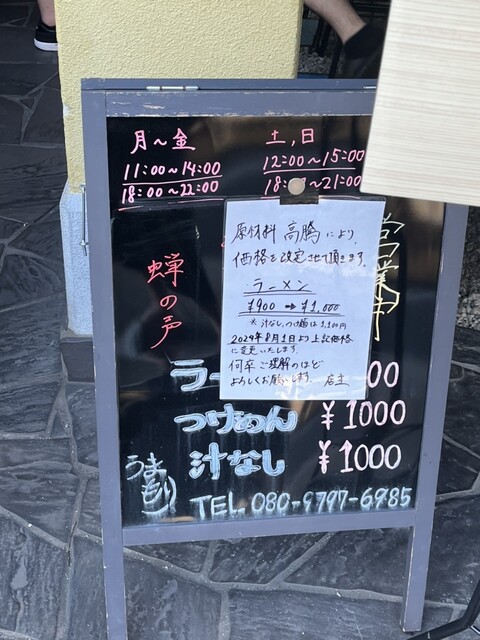 月～金
11:00～14:00
18:00～22:00
土,日
12:00～15:00
18:00～21:00
営業中
蝉の声
原材料高騰により
価格を改定させて頂きます。
ラーメン
¥900→¥1,000
※汁なし,つけ麺は1,100円
2024年8月1日より上記価格
に変更いたします。
何卒ご理解のほど
よろしくお願いします。 店主
ラー 00
つけめん ¥1000
汁なし ¥1000
うまもり
TEL 080-9797-6985